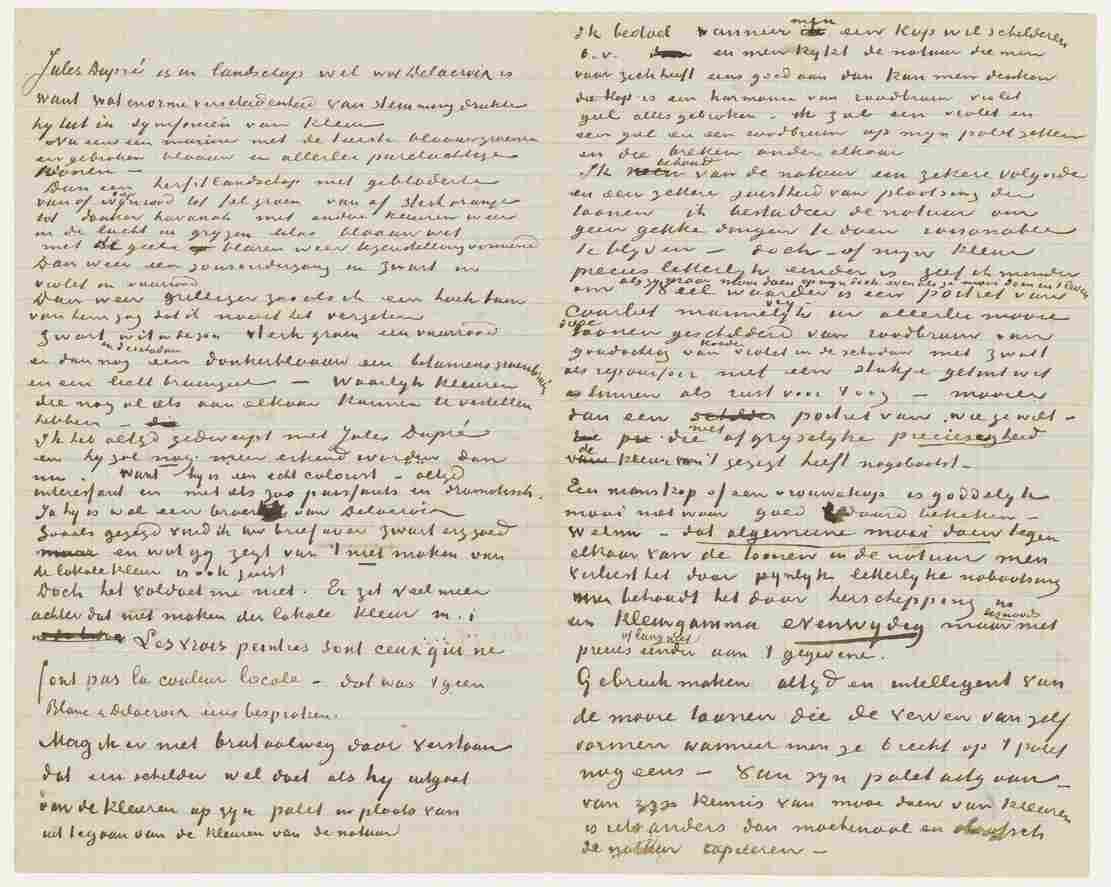 Jules Dupré is in landschap wel wat Delacroix is
want wat enorme verscheidenheid van stemming drukte
hy uit in symfonieën van kleur
Nu eens een marine met de teerste blaauwgroenen
en gebroken blaauw en allerlei parelachtige
toonen —
Dan een herfstlandschap met gebladerte
van af wynrood tot fel groen van af sterk oranje
tot donker havanah met andere kleuren weer
in de lucht in gryzen lilas blaauw wit
met de gele blaren weer tegenstelling vormend
Dan weer een zonsondergang in zwart in
violet in vuurrood
Dan weer grilliger zooals ik een hoek tuin
van hem zag dat ik nooit heb vergeten
zwart in de schaduw wit in de zon sterk groen een vuurrood
en dan nog een donkerblaauw een bitumensgroenbruin
en een licht bruingeel — Waarlyk kleuren
die nog al eens aan elkaar kunnen te vertellen
hebben —
Ik heb altyd gedweept met Jules Dupré
en hy zal nog meer erkend worden dan
nu. Want hy is een echt colorist – altyd
interessant en met iets zoo puissants en dramatisch.
Ja hy is wel een broer van Delacroix
Zooals gezegd vind ik uw brief over zwart erg goed
en wat gy zegt van 't niet maken van
de lokale kleur is ook juist
Doch het voldoet me niet. Er zit veel meer
achter dat niet maken der lokale kleur m.i
Les vrais peintres sont ceux qui ne
font pas la couleur locale – dat was 't geen
Blanc & Delacroix eens bespraken.
Mag ik er niet brutaalweg door verstaan
dat een schilder wel doet als hy uitgaat
van de kleuren op zyn palet in plaats van
uit te gaan van de kleuren van de natuur
Ik bedoel wanneer men een kop wil schilderen
b.v. en men kykt de natuur die men
voor zich heeft eens goed aan dan kan men denken
die kop is een harmonie van roodbruin violet
geel alles gebroken – ik zal een violet en
een geel en een roodbruin op myn palet zetten
en die breken onder elkaar
Ik behoud van de natuur een zekere volgorde
en een zekere juistheid van plaatsing der
toonen ik bestudeer de natuur om
geen gekke dingen te doen raisonnable
te blyven — doch – of myn kleur
precies letterlyk eender is zeg ik minder
om als zy maar mooi doen op myn doek even als ze mooi doen in 't leven
Veel waarder is een portret van
Courbet mannelyk vry in allerlei mooie
diepe toonen geschilderd van roodbruin van
goudachtig van kouder violet in de schaduw met zwart
als repoussoir met een stukje getint wit
linnen als rust voor 't oog – mooier
dan een portret van wie ge wilt –
die niet afgryselyke preciesigheid
de kleur van 't gezigt heeft nagebootst –
Een manskop of een vrouwekop is goddelyk
mooi niet waar goed bedaard bekeken –
Welnu – dat algemeene mooi doen tegen
elkaar van de toonen in de natuur men
verliest het door pynlyk letterlyke nabootsing
men behoudt het door herscheppping
in een kleurgamma evenwydig maar niet noodzakelyk
precies of lang niet eender aan 't gegevene.
Gebruik maken altyd en intelligent van
de mooie toonen die de verven van zelf
vormen wanneer men ze breekt op 't palet
nog eens – van zyn palet uitgaan –
van zyn kennis van mooi doen van kleuren
is iets anders dan machinaal en slaafsch
de natuur copieëren –